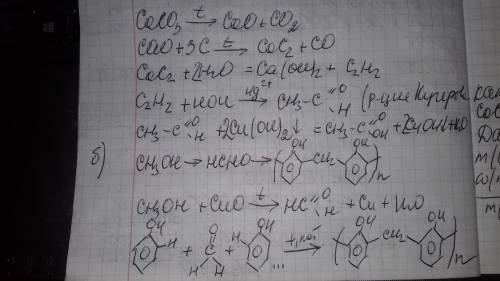 CaCO₃ →(t) CaO + CO₂
CaO + 3C →(t) CaC₂ + CO
CaC₂ + 2H₂O = Ca(OH)₂ + C₂H₂
C₂H₂ + HOH →(Hg²⁺) CH₃-C=O H (р-ция Кучерова
CH₃-C=O H + 2Cu(OH)₂↓ = CH₃-C=O OH + 2CuOH + H₂O
б) CH₃OH → HCHO → ( OH CH₂ OH )n
CH₃OH + CuO →(t) HC=O H + Cu + H₂O
OH H + O C H H + H OH ... →(t, кат) ( OH CH₂ OH )n